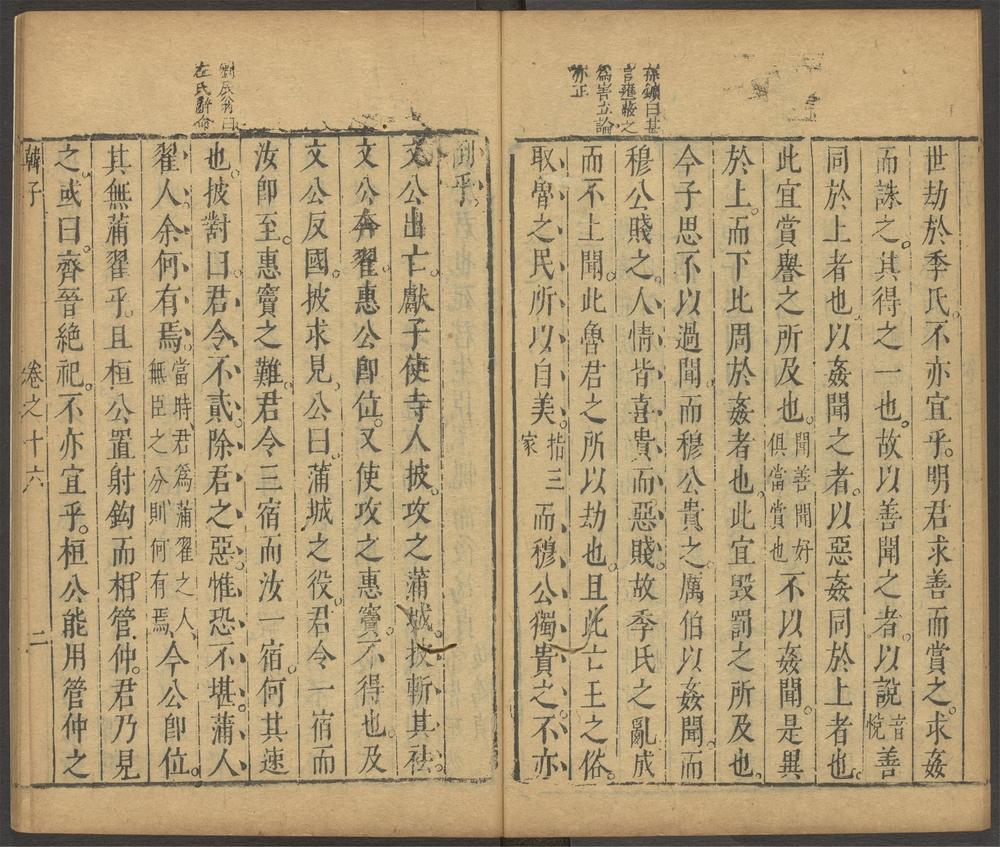 孫鑛曰甚
言壅蔽之
為害立論
亦正
世劫於季氏。不亦宜乎。明君求善而賞之。求姦
而誅之。其得之一也。故以善聞之者。以說音悅善
同於上者也。以姦聞之者。以惡姦同於上者也。
此宜賞譽之所及也。聞善聞好俱當賞也不以姦聞。是異
於上。而下比周於姦者也。此宜毀罰之所及也。
今子思不以過聞。而穆公貴之。厲伯以姦聞。而
穆公賤之。人情皆喜貴而惡賤。故季氏之亂成
而不上聞。此魯君之所以劫也。且此亡王之俗。
取魯之民所以自美。指三家而穆公獨貴之。不亦
倒乎。
劉辰翁曰
左氏辭命
文公出亡。獻子使寺人披攻之蒲城。披斬其袪。
文公奔翟。惠公卽位。又使攻之惠竇。不得也。及
文公反國。披求見。公曰。蒲城之役。君令一宿而
汝卽至。惠竇之難。君令三宿而汝一宿。何其速
也。披對曰。君令不貳。除君之惡。惟恐不堪。蒲人
翟人。余何有焉。當時君為蒲翟之人、無臣之分則何有焉、今公卽位。
其無蒲翟乎。且桓公置射鉤而相管仲。君乃見
之。或曰。齊晉絕祀。不亦宜乎。桓公能用管仲之
韓子　卷之十六　二